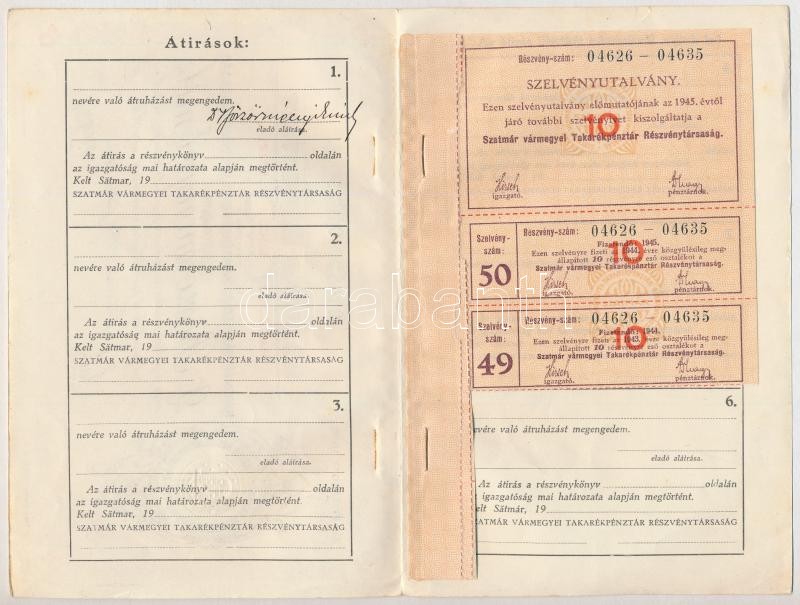 Átirások:
1.
nevére való átruházást megengedem.
eladó aláirása.
Az átirás a részvénykönyv oldalán
az igazgatóság mai határozata alapján megtörtént.
Kelt Sätmar, 19
SZATMÁR VÁRMEGYEI TAKARÉKPÉNZTÁR RÉSZVÉNYTÁRSASÁG
2.
nevére való átruházást megengedem.
eladó aláirása.
Az átirás a részvénykönyv oldalán
az igazgatóság mai határozata alapján megtörtént.
Kelt Sätmar, 19
SZATMÁR VÁRMEGYEI TAKARÉKPÉNZTÁR RÉSZVÉNYTÁRSASÁG
3.
nevére való átruházást megengedem.
eladó aláirása.
Az átirás a részvénykönyv oldalán
az igazgatóság mai határozata alapján megtörtént.
Kelt Sätmar, 19
SZATMÁR VÁRMEGYEI TAKARÉKPÉNZTÁR RÉSZVÉNYTÁRSASÁG
Részvény-szám: 04626 - 04635
SZELVÉNYUTALVÁNY.
Ezen szelvényutalvány előmutatójának az 1945. évtől
járó további szelvényivet kiszolgáltatja a
10
Szatmár vármegyei Takarékpénztár Részvénytársaság.
Hirsch
igazgató. pénztárnok.
Szelvény-szám: 50
Részvény-szám: 04626 - 04635
Fizetendő: 1945.
Ezen szelvényre fizeti az 1944. évre közgyülésileg meg-
állapitott 10 részvényre eső osztalékot a
10
Szatmár vármegyei Takarékpénztár Részvénytársaság.
Hirsch
igazgató. pénztárnok.
Szelvény-szám: 49
Részvény-szám: 04626 - 04635
Fizetendő: 1944.
Ezen szelvényre fizeti az 1943. évre közgyülésileg meg-
állapitott 10 részvényre eső osztalékot a
10
Szatmár vármegyei Takarékpénztár Részvénytársaság.
Hirsch
igazgató. pénztárnok.
6.
nevére való átruházást megengedem.
eladó aláirása.
Az átirás a részvénykönyv oldalán
az igazgatóság mai határozata alapján megtörtént.
elt Sätmár, 19
SZATMÁR VÁRMEGYEI TAKARÉKPÉNZTÁR RÉSZVÉNYTÁRSASÁG
darabanth